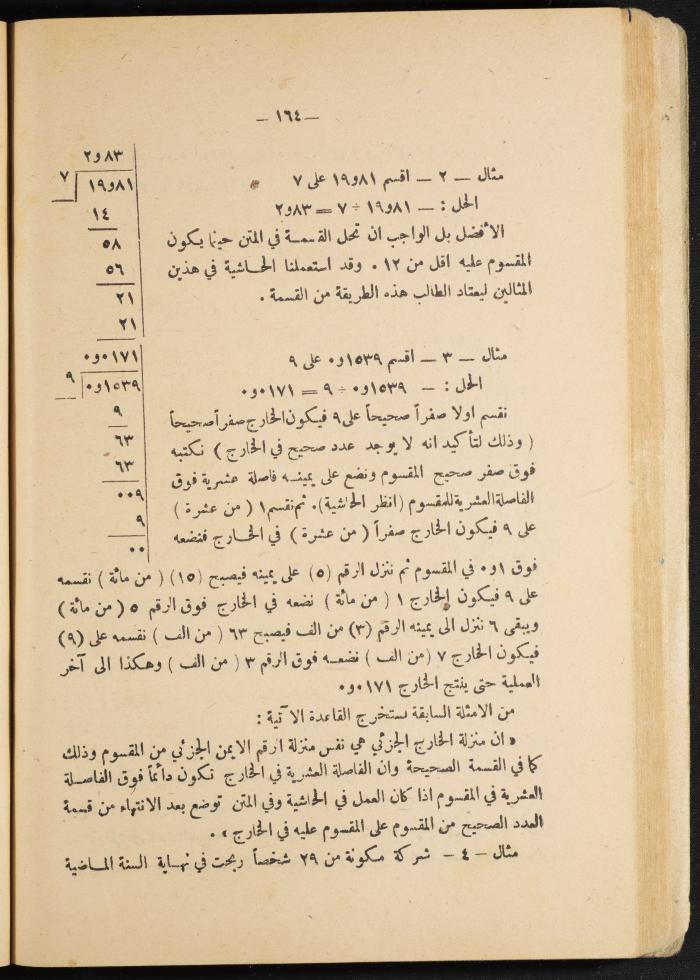 — ١٦٤ —
مثال — ٢ — اقسم ١٩و٨١ على ٧
الحل : — ١٩و٨١ ÷ ٧ = ٢و٨٣
الأفضل بل الواجب ان تحل القسمة في المتن حينما يكون
المقسوم عليه اقل من ١٢ . وقد استعملنا الحاشية في هذين
المثالين ليعتاد الطالب هذه الطريقة من القسمة .
٢و٨٣
١٩و٨١ ٧
١٤
٥٨
٥٦
٢١
٢١
مثال — ٣ — اقسم ٠و١٥٣٩ على ٩
الحل : — ٠و١٥٣٩ ÷ ٩ = ٠و٠١٧١
نقسم اولا صفراً صحيحاً على ٩ فيكون الخارج صفراً صحيحاً
( وذلك لتأكيد انه لا يوجد عدد صحيح في الخارج ) نكتبه
فوق صفر صحيح المقسوم ونضع على يمينه فاصلة عشرية فوق
الفاصلة العشرية للمقسوم (انظر الحاشية). ثم نقسم ١ ( من عشرة )
على ٩ فيكون الخارج صفراً ( من عشرة ) في الخارج فنضعه
٠و٠١٧١
٠و١٥٣٩ ٩
٩
٦٣
٦٣
٠٠٩
٩
٠٠
فوق ٠و١ في المقسوم ثم ننزل الرقم (٥) على يمينه فيصبح (١٥) ( من مائة ) نقسمه
على ٩ فيكون الخارج ١ ( من مائة ) نضعه في الخارج فوق الرقم ٥ ( من مائة )
ويبقى ٦ ننزل الى يمينه الرقم (٣) من الف فيصبح ٦٣ ( من الف ) نقسمه على (٩)
فيكون الخارج ٧ (من الف ) نضعه فوق الرقم ٣ ( من الف ) وهكذا الى آخر
العملية حتى ينتج الخارج ٠و٠١٧١
من الامثلة السابقة نستخرج القاعدة الآتية :
« ان منزلة الخارج الجزئي هي نفس منزلة الرقم الايمن الجزئي من المقسوم وذلك
كما في القسمة الصحيحة وان الفاصلة العشرية في الخارج تكون دائماً فوق الفاصلة
العشرية في المقسوم اذا كان العمل في الحاشية وفي المتن توضع بعد الانتهاء من قسمة
العدد الصحيح من المقسوم على المقسوم عليه في الخارج » .
مثال — ٤ — شركة مكونة من ٢٩ شخصاً ربحت في نهاية السنة الماضية